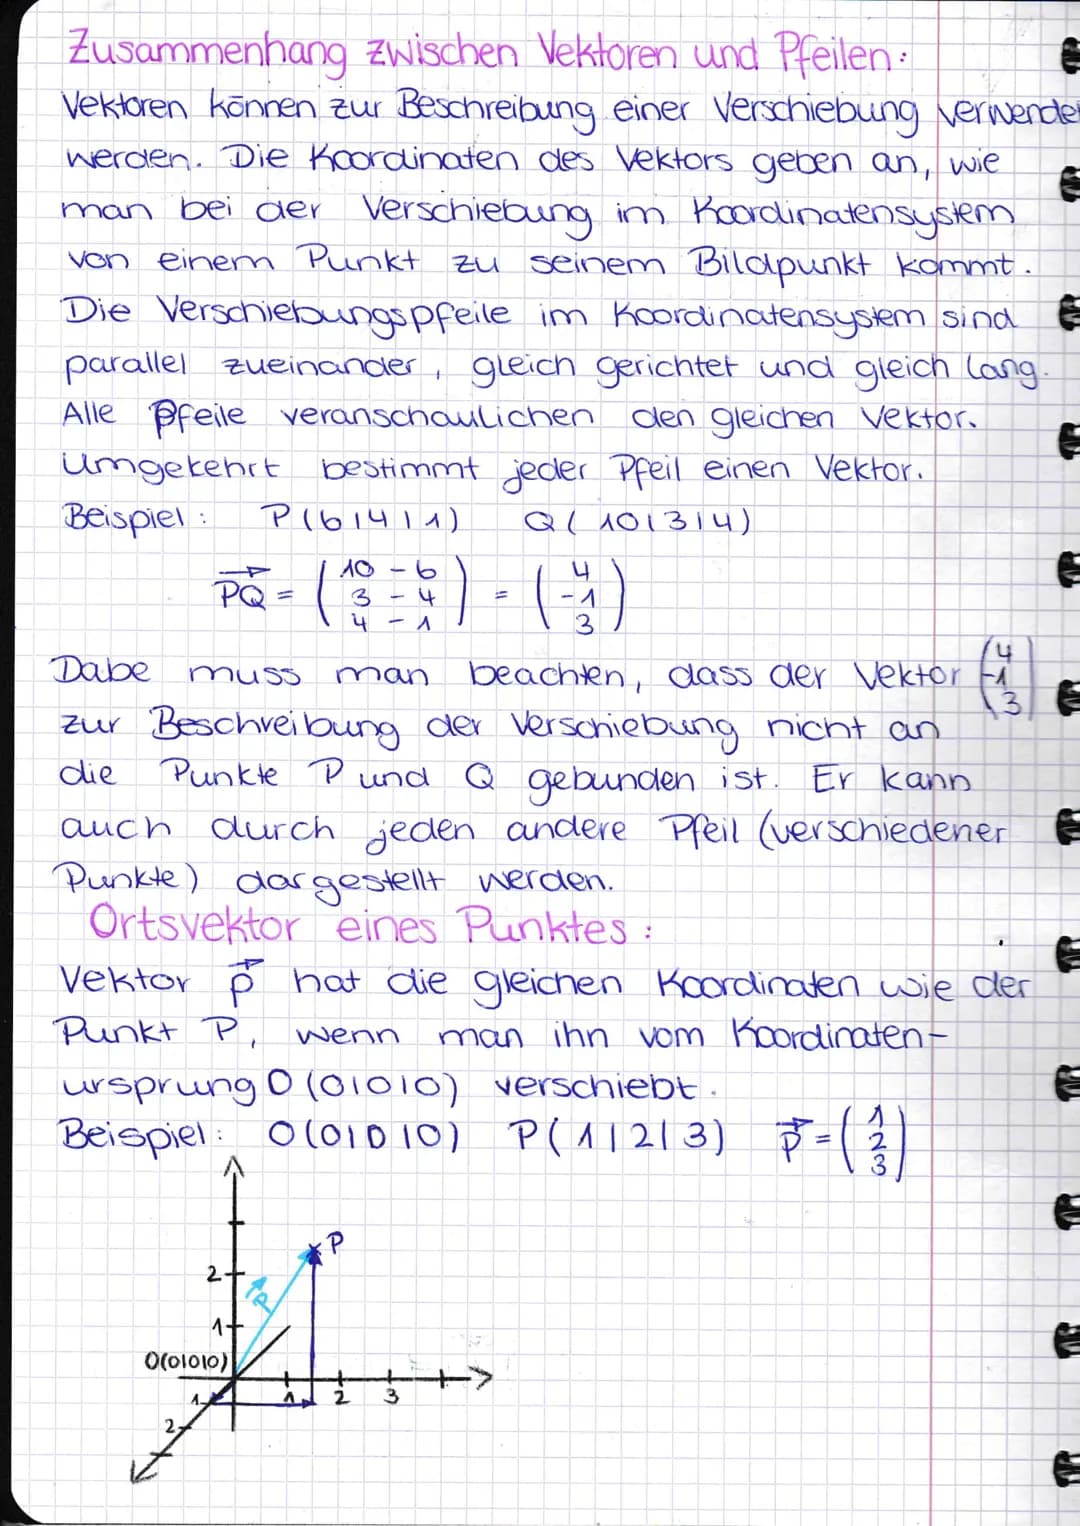 Zusammenhang zwischen Vektoren und Pfeilen:
Vektoren können zur Beschreibung einer Verschiebung verwende
werden. Die Koordinaten des Vektors geben an, wie
man bei der Verschiebung im Koordinatensystem
von einem Punkt zu seinem Bildpunkt kommt.
Die Verschiebungspfeile im Koordinatensystem sind
parallel zueinander, gleich gerichtet und gleich lang.
Alle Pfeile veranschaulichen den gleichen Vektor.
Umgekehrt bestimmt jeder Pfeil einen Vektor.
Beispiel: P(6|4|1) Q(10|3|4)
10 - 6 4
PQ = ( 3 - 4 ) = ( -1 )
4 - 1 3
Dabe muss man beachten, dass der Vektor (4 -1 3)
zur Beschreibung der Verschiebung nicht an
die Punkte P und Q gebunden ist. Er kann
auch durch jeden andere Pfeil (verschiedener
Punkte) dargestellt werden.
Ortsvektor eines Punktes:
Vektor p⃗ hat die gleichen Koordinaten wie der
Punkt P, wenn man ihn vom Koordinaten-
ursprung O(0|0|0) verschiebt.
Beispiel: O(0|0|0) P(1|2|3) p⃗ = (1 2 3)
P
2
p⃗
1
O(0|0|0)
1 1 2 3
2